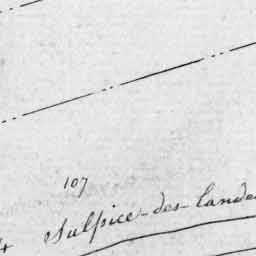 107
Sulpice-des-lande